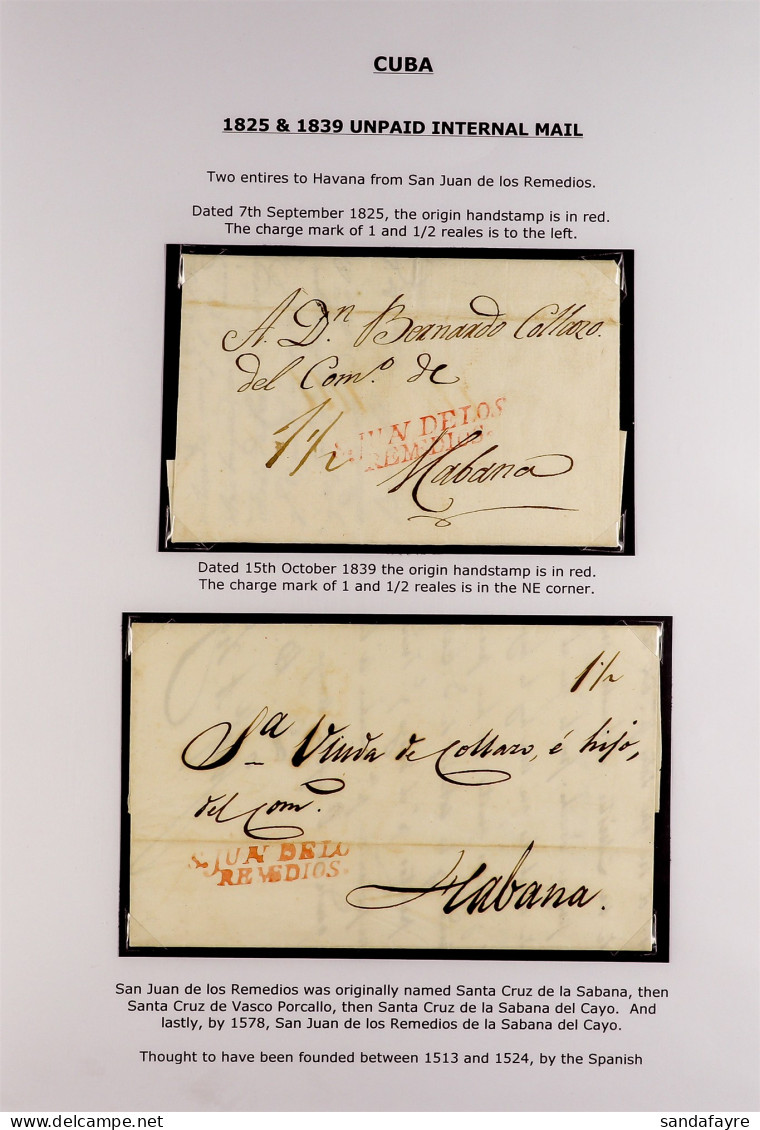 CUBA
1825 & 1839 UNPAID INTERNAL MAIL
Two entires to Havana from San Juan de los Remedios.
Dated 7th September 1825, the origin handstamp is in red.
The charge mark of 1 and 1/2 reales is to the left.
A. Dn Bernardo Collazo.
del Como. de
1 1/2
S. JUN DE LOS
REMEDIOS.
Habana
Dated 15th October 1839 the origin handstamp is in red.
The charge mark of 1 and 1/2 reales is in the NE corner.
1 1/2
Sa Viuda de Collazo, é hijo,
del Com.
S. JUN DE LO
REMEDIOS.
Habana.
San Juan de los Remedios was originally named Santa Cruz de la Sabana, then
Santa Cruz de Vasco Porcallo, then Santa Cruz de la Sabana del Cayo. And
lastly, by 1578, San Juan de los Remedios de la Sabana del Cayo.
Thought to have been founded between 1513 and 1524, by the Spanish
sandafayre